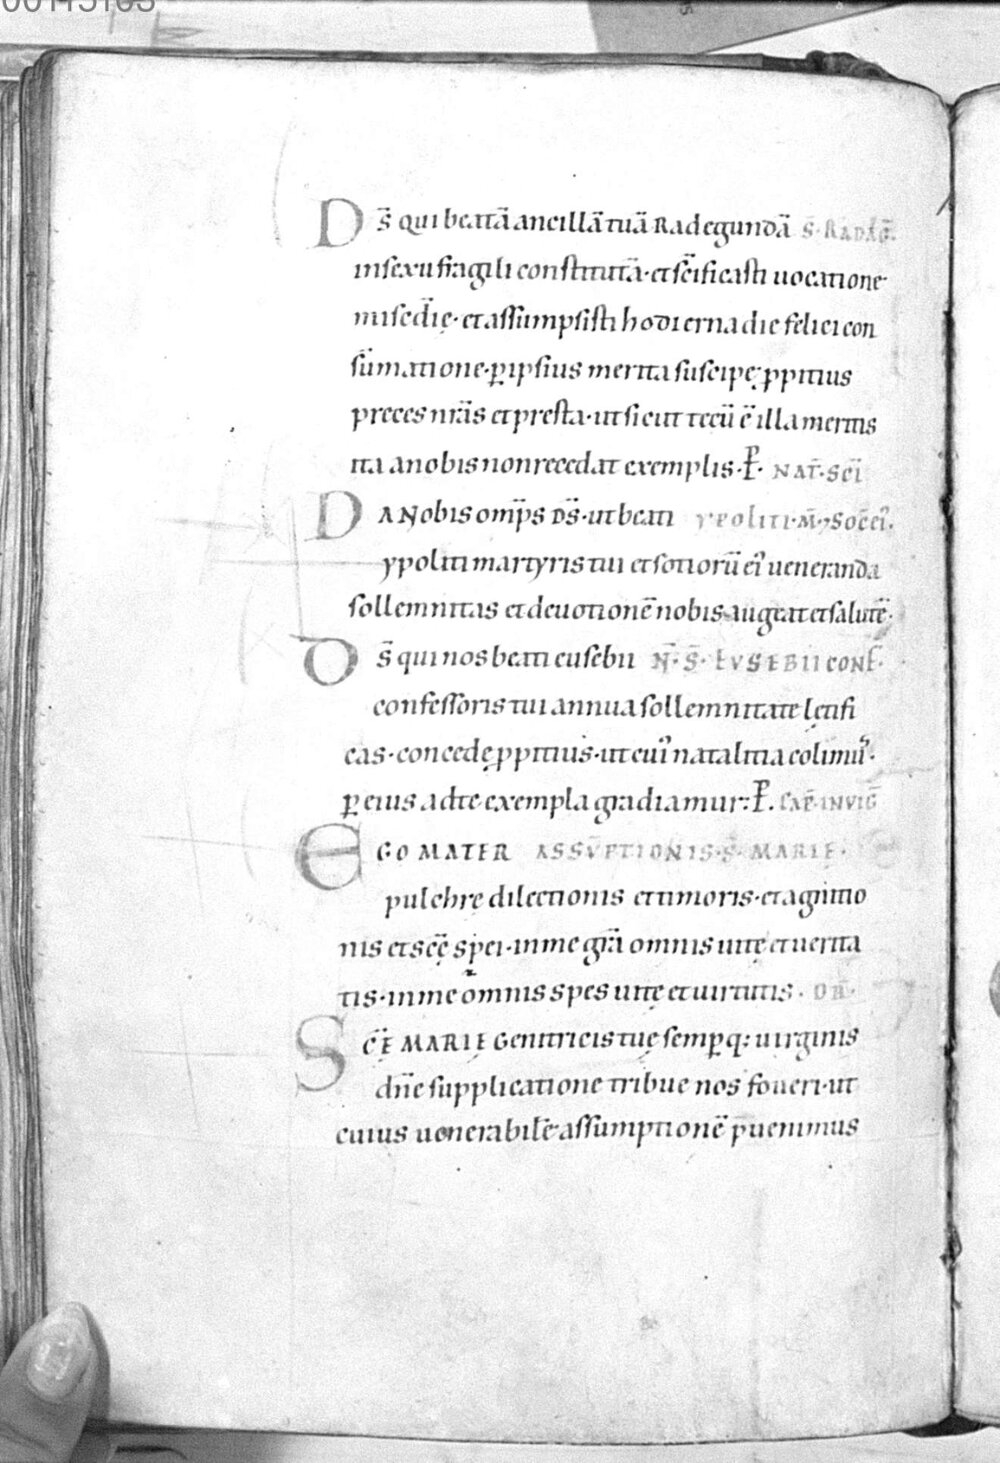 00115163
Ds̄ qui beatā ancillā tuā Radegundā S̄. RADAG̅.
in sexu fragili constitutā· et sc̄ificasti uocatione
misc̄dię· et assumpsisti hodierna die felici con
sūmatione· ꝑ ipsius merita suscipe ꝓpitius
preces nr̄as et presta· ut sicut tecū ē illa meritis
ita a nobis non recedat exemplis· P̄. NAT̄. SC̄I
DA Nobis omp̄s DS̄· ut beati YPOLITI· M̄· ⁊ SOC̄ EI᷒.
ypoliti martyris tui et sotiorū ei᷒ ueneranda
sollemnitas et deuotionē nobis augeat et salutē·
Ds̄ qui nos beati eusebii N̄· S̄· EVSEBII CONF̄·
confessoris tui annua sollemnitate lętifi
cas· concede ꝓpitius· ut cui᷒ natalitia colim᷒·
ꝑ eius ad te exempla gradiamur: P̄. CAP̄. IN VIG̅
EGO MATER ASSV̄PTIONIS· S̄· MARIE·
pulchrę dilectionis et timoris· et agnitio
nis et sc̄ę spei· in me gr̄a omnis uitę et uerita
tis· in me omnis spes uitę et uirtutis· OR̄·
SC̄E MARIE Genitricis tuę semꝑq: uirginis
dn̄e supplicatione tribue nos foueri· ut
cuius uenerabilē assumptionē p̄uenimus